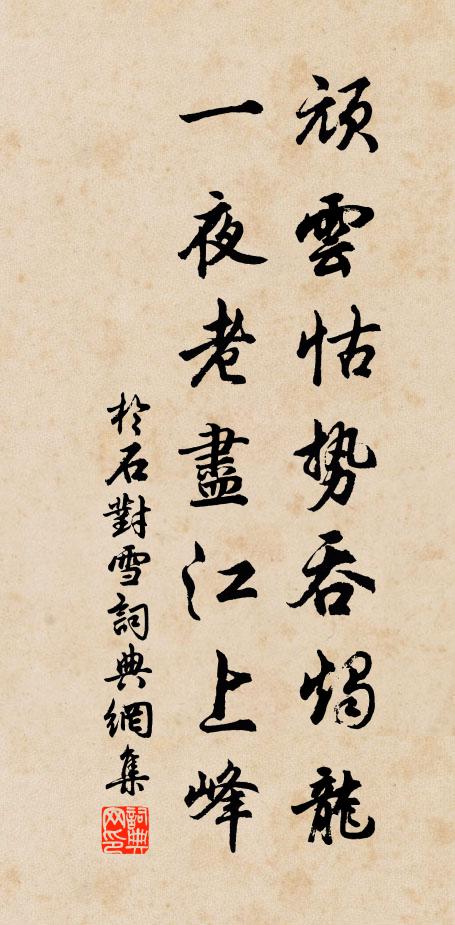 頑雲怙勢吞燭龍
一夜老盡江上峰
於石對雪詞典網集
詞典網印